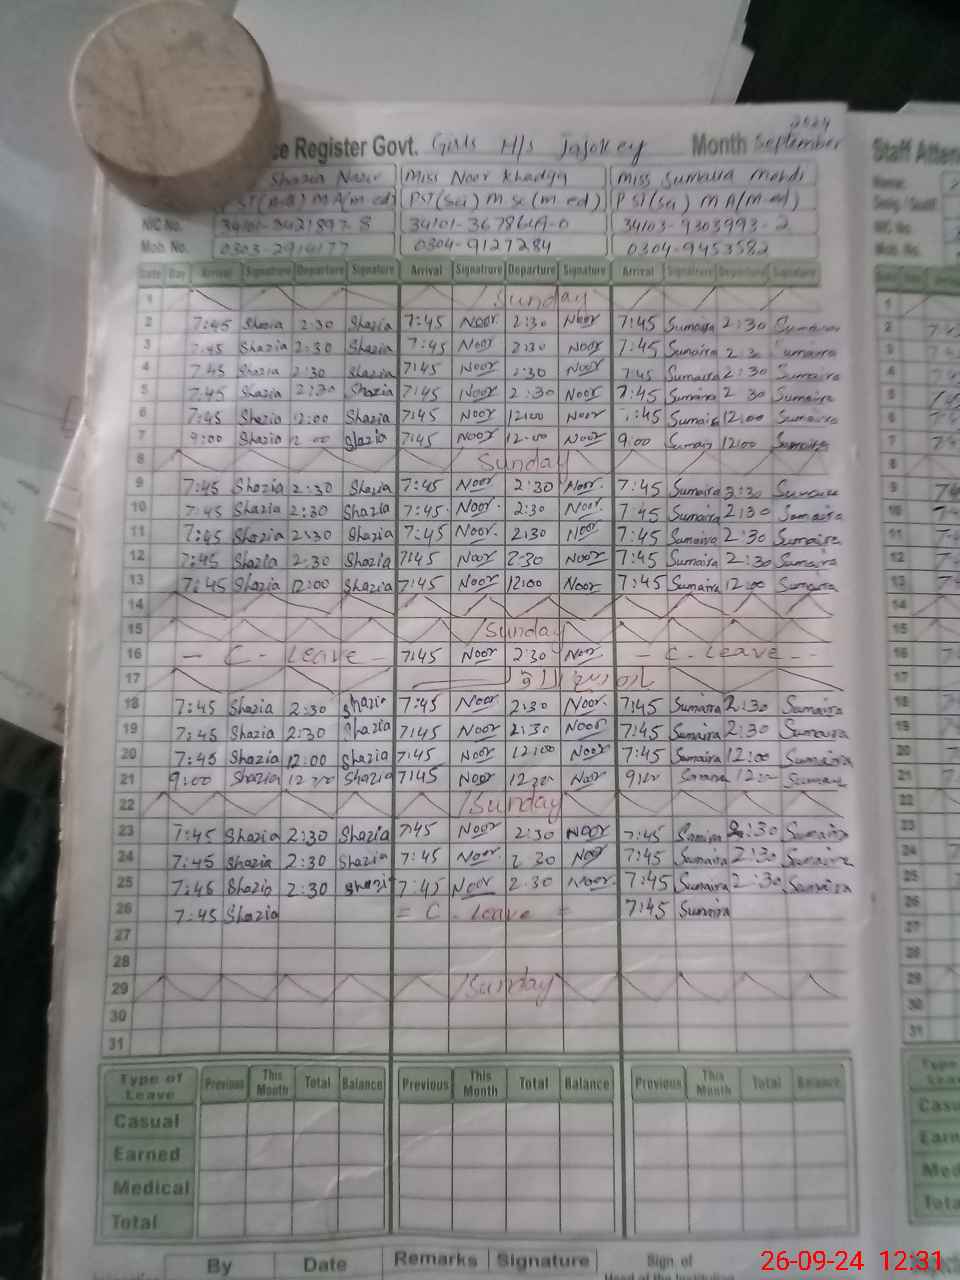 2024
ce Register Govt. Girls H/s Jajokey Month September Staff Atten
Shazia Nazir Miss Noor Khadija Miss Sumaira Mehdi
PST( ) M A(m ed) PST(Sci) M Sc(m ed) PST(Sci) M A(M-ed)
NIC No. 34101- 34103-9303993-2
Mob. No. 0304-9127284 0304-9453582
Date Day Arrival Signature Departure Signature Arrival Signatrure Departure Signature Arrival Signatrure Departure Signature
1 Sunday 1
2 7:45 Shazia 2:30 Shazia 7:45 Noor 2:30 Noor 7:45 Sumaira 2:30 Sumaira 2
3 7:45 Shazia 2:30 Shazia 7:45 Noor 2:30 Noor 7:45 Sumaira 2:30 Sumaira 3
4 7:45 Shazia 2:30 Shazia 7:45 Noor 2:30 Noor 7:45 Sumaira 2:30 Sumaira 4
5 7:45 Shazia 2:30 Shazia 7:45 Noor 2:30 Noor 7:45 Sumaira 2 30 Sumaira 5
6 7:45 Shazia 12:00 Shazia 7:45 Noor 12:00 Noor 7:45 Sumaira 12:00 Sumaira 6
7 9:00 Shazia 12:00 Shazia 7:45 Noor 12:00 Noor 9:00 Sumaira 12:00 Sumaira 7
8 Sunday 8
9 7:45 Shazia 2:30 Shazia 7:45 Noor 2:30 Noor 7:45 Sumaira 2:30 Sumaira 9
10 7:45 Shazia 2:30 Shazia 7:45 Noor 2:30 Noor 7:45 Sumaira 2:30 Sumaira 10
11 7:45 Shazia 2:30 Shazia 7:45 Noor 2:30 Noor 7:45 Sumaira 2:30 Sumaira 11
12 7:45 Shazia 2:30 Shazia 7:45 Noor 2:30 Noor 7:45 Sumaira 2:30 Sumaira 12
13 7:45 Shazia 12:00 Shazia 7:45 Noor 12:00 Noor 7:45 Sumaira 12:00 Sumaira 13
14 14
15 Sunday 15
16 - C. Leave - 7:45 Noor 2:30 Noor - C. Leave - 16
17 17
18 7:45 Shazia 2:30 Shazia 7:45 Noor 2:30 Noor 7:45 Sumaira 2:30 Sumaira 18
19 7:45 Shazia 2:30 Shazia 7:45 Noor 2:30 Noor 7:45 Sumaira 2:30 Sumaira 19
20 7:45 Shazia 12:00 Shazia 7:45 Noor 12:00 Noor 7:45 Sumaira 12:00 Sumaira 20
21 9:00 Shazia 12:00 Shazia 7:45 Noor 12:00 Noor 9:00 Sumaira 12:00 Sumaira 21
22 Sunday 22
23 7:45 Shazia 2:30 Shazia 7:45 Noor 2:30 Noor 7:45 Sumaira 2:30 Sumaira 23
24 7:45 Shazia 2:30 Shazia 7:45 Noor 2 30 Noor 7:45 Sumaira 2:30 Sumaira 24
25 7:45 Shazia 2:30 Shazia 7:45 Noor 2:30 Noor 7:45 Sumaira 2:30 Sumaira 25
26 7:45 Shazia = C. Leave = 7:45 Sumaira 26
27 27
28 28
29 Sunday 29
30 30
31 31
Type of Leave Previous This Month Total Balance Previous This Month Total Balance Previous This Month Total Balance
Casual
Earned
Medical
Total
By Date Remarks Signature Sign. of
26-09-24 12:31